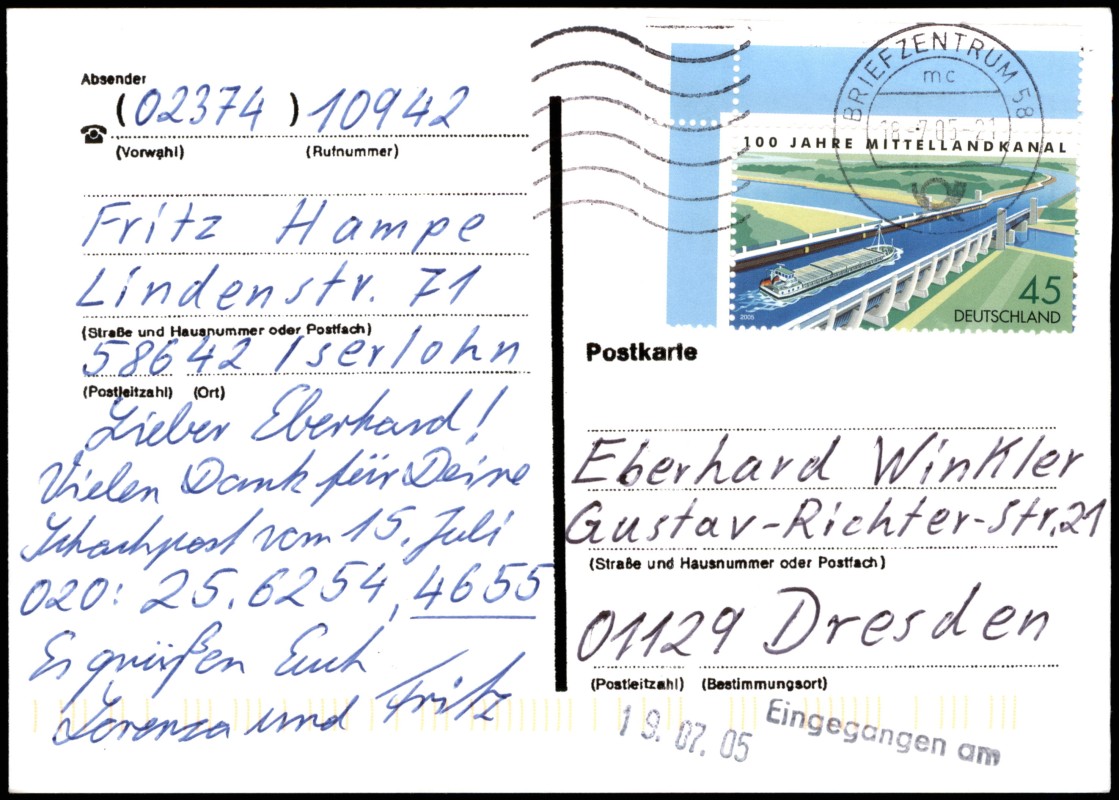 Absender
(02374) 10942
(Vorwahl) (Rufnummer)
Fritz Hampe
Lindenstr. 71
(Straße und Hausnummer oder Postfach)
58642 Iserlohn
(Postleitzahl) (Ort)
Lieber Eberhard!
Vielen Dank für Deine
Schachpost vom 15. Juli
020: 25.6254, 4655
Es grüßen Euch
Lorenza und Fritz
BRIEFZENTRUM 58
mc
18.-7.05-21
100 JAHRE MITTELLANDKANAL
45
DEUTSCHLAND
2005
Postkarte
Eberhard Winkler
Gustav-Richter-Str. 21
(Straße und Hausnummer oder Postfach)
01129 Dresden
(Postleitzahl) (Bestimmungsort)
19. 07. 05 Eingegangen am